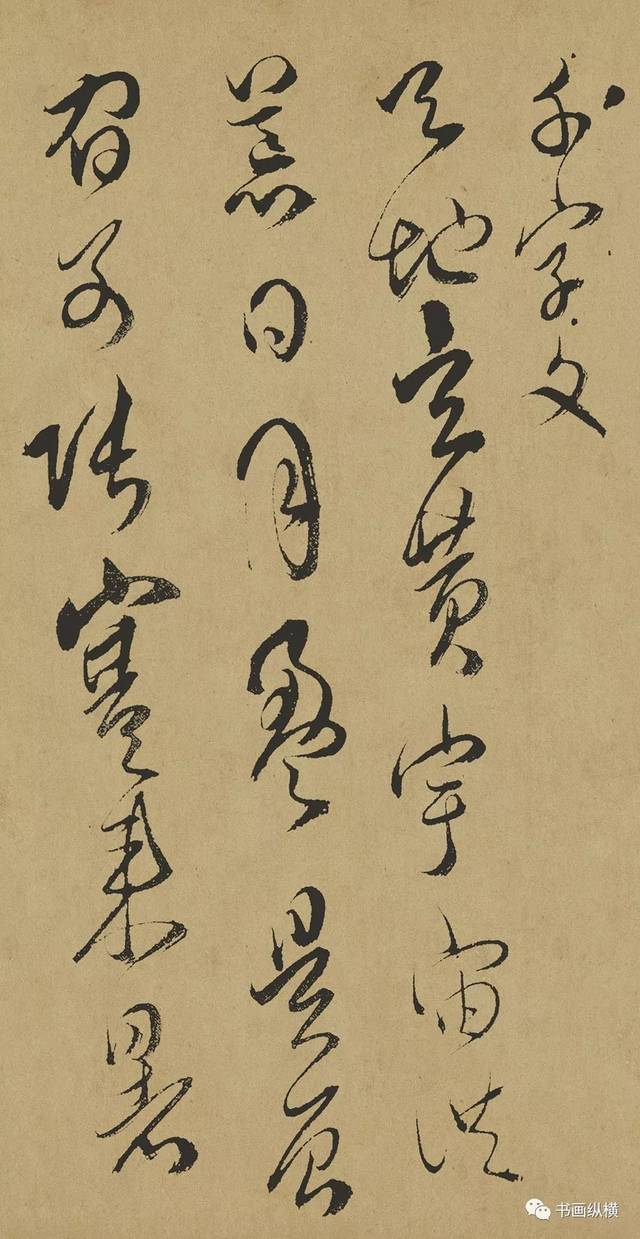 千字文
天地玄黄宇宙洪
荒日月盈昃辰
宿列張寒来暑
书画纵横